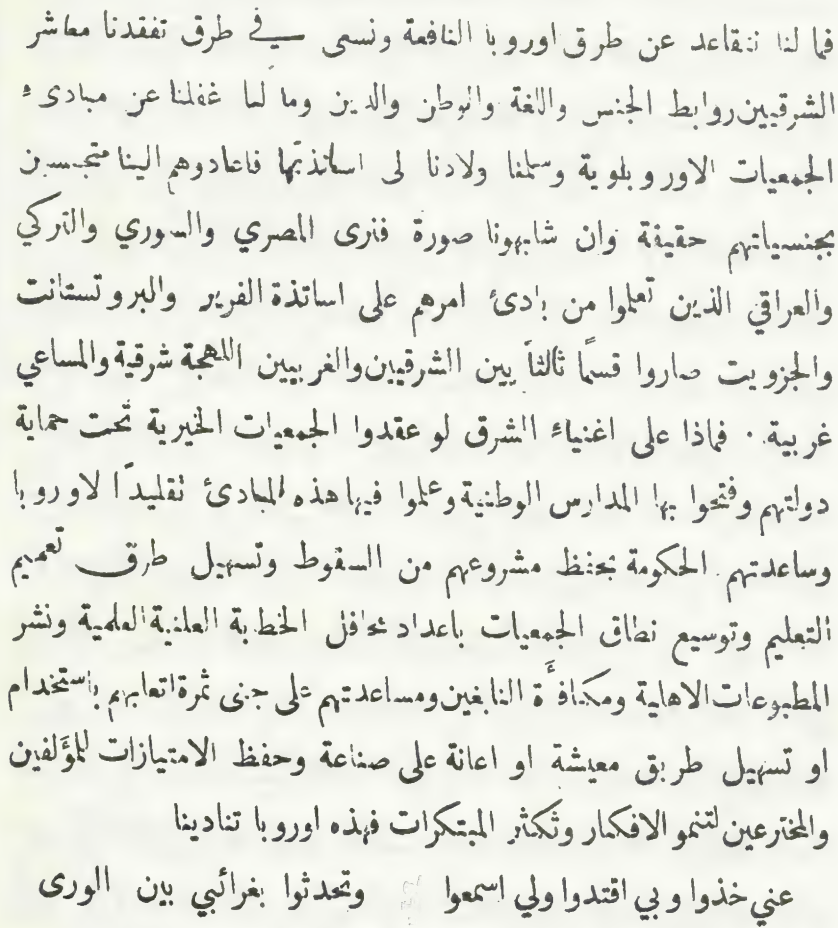 فما لنا نتقاعد عن طرق اوروبا النافعة ونسعى في طرق تفقدنا معاشر
الشرقيين روابط الجنس واللغة والوطن والدين وما لنا غفلنا عن مبادىء
الجمعيات الاوروباوية وسلمنا ولادنا لى اساتذتها فاعادوهم الينا متجنسين
بجنسياتهم حقيقة وان شابهونا صورة فنرى المصري والسوري والتركي
والعراقي الذين تعلموا من بادئ امرهم على اساتذة الفرير والبروتستانت
والجزويت صاروا قسمًا ثالثًا بين الشرقيين والغربيين اللهجة شرقية والمساعي
غربية . فماذا على اغنياء الشرق لو عقدوا الجمعيات الخيرية تحت حماية
دولتهم وفتحوا بها المدارس الوطنية وعلموا فيها هذه المبادئ تقليدًا لاوروبا
وساعدتهم الحكومة بحفظ مشروعهم من السقوط وتسهيل طرق تعميم
التعليم وتوسيع نطاق الجمعيات باعداد محافل الخطابة العلنية العلمية ونشر
المطبوعات الاهلية ومكافأة النابغين ومساعدتهم على جنى ثمرة اتعابهم باستخدام
او تسهيل طريق معيشة او اعانة على صناعة وحفظ الامتيازات للمؤلفين
والمخترعين لتنمو الافكار وتكثر المبتكرات فهذه اوروبا تنادينا
عني خذوا وبي اقتدوا ولي اسمعوا وتحدثوا بغرائبي بين الورى